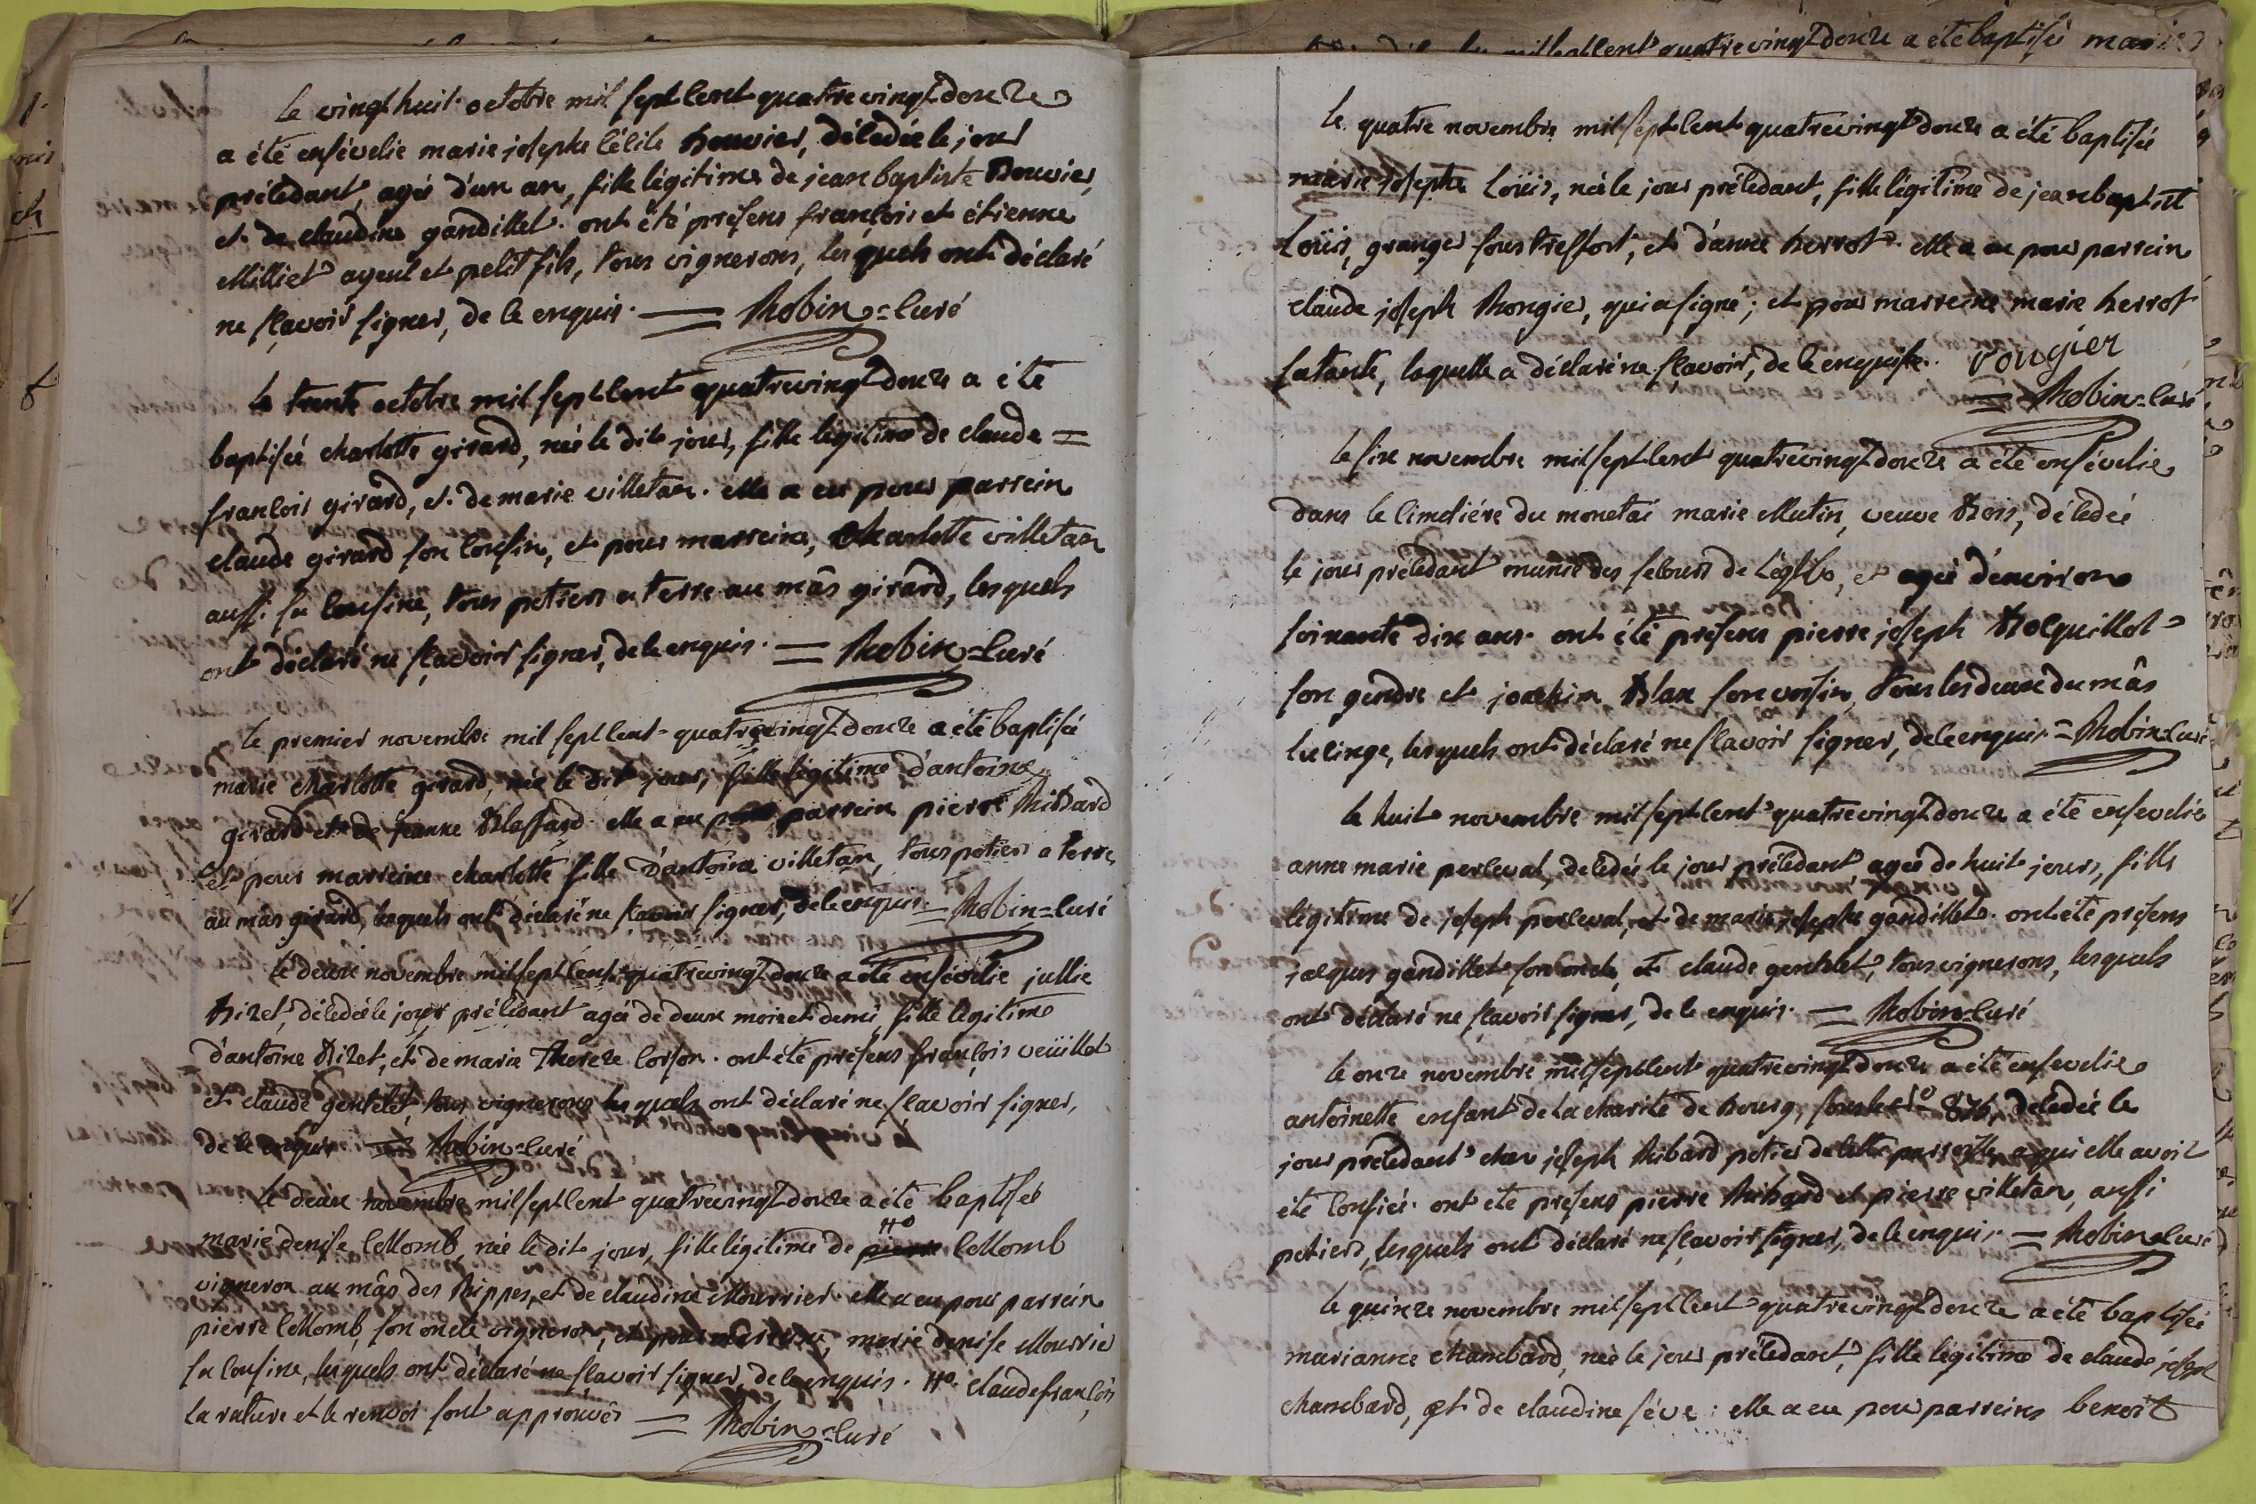 le vingt huit octobre mil sept cent quatre vingt douze
a été ensévelie marie josephe cécile bouvier, décédée le jour
précédant, agée d'un an, fille légitime de jean baptiste Bouvier,
et de claudine gandillet. ont été présens françois et étienne
Milliet ayeul et petit fils, tous vignerons, lesquels ont déclaré
ne sçavoir signer, de ce enquis. = Robin = curé
le trente octobre mil sept cent quatre vingt douze a été
baptisée charlotte girard, née le dit jour, fille légitime de claude =
françois girard, et de marie villetan. elle a eu pour parrein
claude girard son cousin, et pour marreine, charlotte villetan
aussi sa cousine, tous potiers a terre au mâs girard, lesquels
ont déclaré ne sçavoir signer, de ce enquis. = Robin = curé
le premier novembre mil sept cent quatre vingt douze a été baptisée
marie charlotte girard, née le dit jour, fille légitime d'antoine
girard et de jeanne Blassard. elle a eu pour parrein pierre Ribard
et pour marreine charlotte fille d'antoine villetan, tous potiers a terre
au mâs girard, lesquels ont déclaré ne sçavoir signer, de ce enquis. = Robin = curé
le deux novembre mil sept cent quatre vingt douze a été ensévelie jullie
Bizet, décédée le jour précédant agée de deux mois et demi, fille légitime
d'antoine Bizet, et de marie Thereze corson. ont été présens françois veuillet
et claude gentelet tous vignerons lesquels ont déclaré ne sçavoir signer,
de ce enquis = Robin = curé
le deux novembre mil sept cent quatre vingt douze a été baptisée
marie denise coMomb, née le dit jour, fille légitime de pierre #° coMomb
vigneron au mâs des Rippes, et de claudine Mourrier. elle a eu pour parrein
pierre coMomb, son oncle vigneron, et pour marreine, marie denise Mourrie
sa cousine, lesquels ont déclaré ne sçavoir signer, de ce enquis. #° claude françois
la rature et le renvoi sont approuvés = Robin = curé
mil sept cent quatre vingt douze a été baptisée marie
le quatre novembre mil sept cent quatre vingt douze a été baptisée
marie josephe Loüis, née le jour précédant, fille légitime de jean baptiste
Loüis, granger sous treffort, et d'anne herrot. elle a eu pour parrein
claude joseph Rongier, qui a signé; et pour marreine marie herrot
sa tante, laquelle a déclaré ne sçavoir, de ce enquise. rougier
= Robin = curé
le six novembre mil sept cent quatre vingt douze a été ensévelie
dans le cimetiére du monetai marie Mutin, veuve Bois, décédée
le jour précédant munie des secours de l'église, et agée d'environ
soixante dix ans. ont été présens pierre joseph Bocquillot
son gendre et joachim Blan son voisin, tous les deux du mâs
lucinge, lesquels ont déclaré ne sçavoir signer, de ce enquis = Robin = curé
le huit novembre mil sept cent quatre vingt douze a été ensevelie
anne marie perceval, décédée le jour précédant agée de huit jours, fille
légitime de joseph perceval, et de marie josephe gandillet. ont été présens
jacques gandillet son oncle, et claude gentelet, tous vignerons, lesquels
ont déclaré ne sçavoir signer, de ce enquis. = Robin = curé
le onze novembre mil sept cent quatre vingt douze a été ensevelie
antoinette enfant de la charité de bourg, sous le n° 876, décédée le
jour précédant chez joseph Ribard potier de cette parroisse a qui elle avoit
été confiée. ont été présens pierre Ribard et pierre villetan, aussi
potiers, lesquels ont déclaré ne sçavoir signer, de ce enquis = Robin = curé
le quinze novembre mil sept cent quatre vingt douze a été baptisée
marianne chambard, née le jour précédant, fille légitime de claude joseph
chambard, et de claudine séve: elle a eu pour parreins benoit